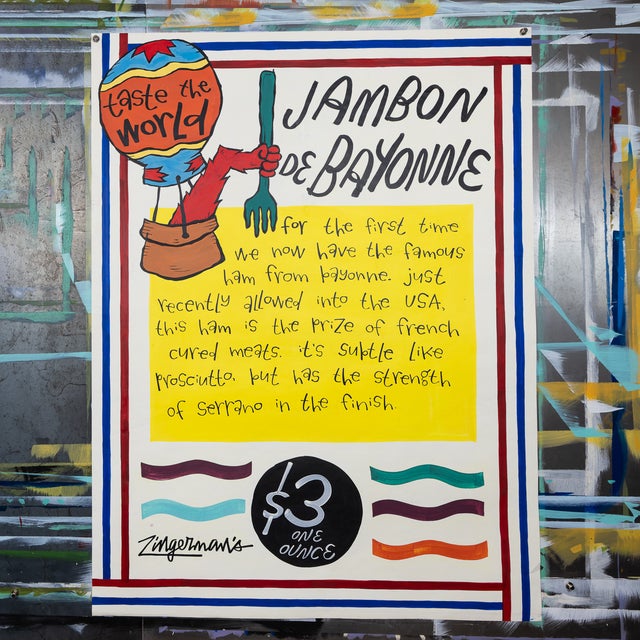 taste the
world
JAMBON
DE BAYONNE
for the first time
we now have the famous
ham from bayonne. just
recently allowed into the USA,
this ham is the prize of french
cured meats. it's subtle like
prosciutto. but has the strength
of serrano in the finish.
$3
ONE
OUNCE
Zingerman's